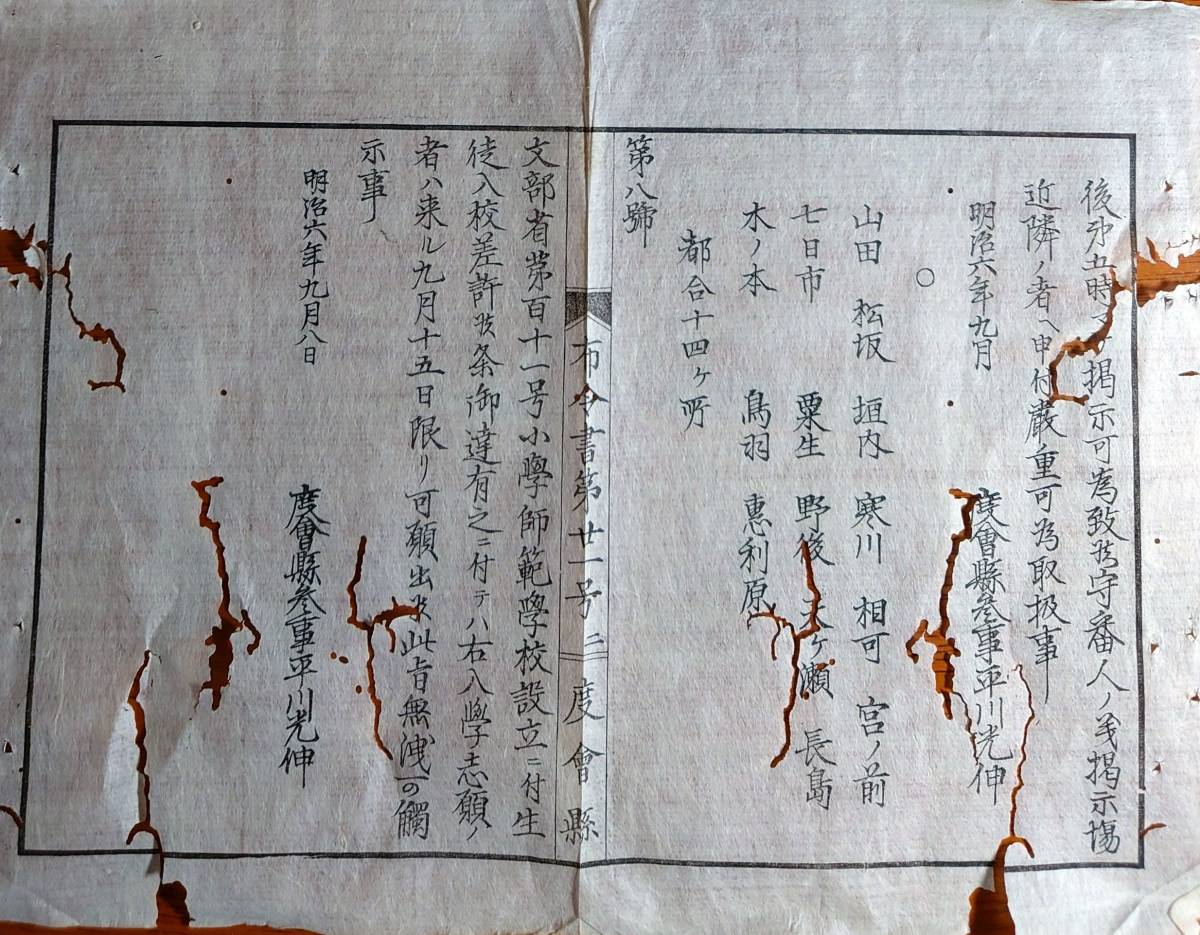 後第五時マテ掲示可為致候守番人ノ義掲示場
近隣ノ者ヘ申付嚴重可為取扱事
明治六年九月 度會縣參事平川光伸
○
山田 松坂 垣内 寒川 相可 宮ノ前
七日市 粟生 野後 天ヶ瀬 長島
木ノ本 鳥羽 惠利原
都合十四ヶ所
第八號
布令書第廿一号 三 度會縣
文部省第百十一号小學師範學校設立ニ付生
徒入校差許候条御達有之ニ付テハ右入學志願ノ
者ハ来ル九月十五日限リ可願出候此旨無洩可觸
示事
明治六年九月八日
度會縣參事平川光伸